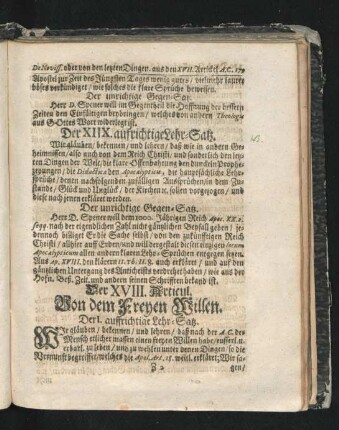 De Noviss. oder von den letzten Dingen. aus den XVII. Articul A.C. 179
Apostel zur Zeit des Jüngsten Tages wenig gutes / vielmehr lauter
böses verkündiget / wie solches die klare Sprüche beweisen.
Der unrichtige Gegen-Satz.
Herr D. Spener will im Gegentheil die Hoffnung der bessern
Zeiten den Einfältigen beybringen / welches von andern Theologis
aus GOttes Wort widerlegt ist.
Der XIIX. auffrichtige Lehr-Satz.
Wir gläuben / bekennen / und lehren / daß wie in andern Ge-
heimnissen / also auch von dem Reich Christi / und sonderlich den letz-
ten Dingen der Welt / die klare Offenbahrung den dunckeln Prophe-
zeyungen / die Didactica den Apocalypticis, die hauptsächliche Lehr-
sprüche / denen nachfolgenden zufälligen Aussprüchen / in dem Zu-
stande / Glück und Unglück / der Kirchen etc. sollen vorgezogen / und
diese nach jenen erkläret werden.
Der unrichtige Gegen-Satz.
Herr D. Spener will dem 1000. Jährigen Reich Apoc. XX. 1.
seqq. nach der eigendlichen Zahl nicht gäntzlichen Beyfall geben / je-
dennoch billiget Er die Sache selbst / von den zukünfftigen Reich
Christi / allhier auff Erden / und will dergestalt diesen einzigen locum
Apocalypticum allen andern klaren Lehr-Sprüchen entgegen setzen.
Und Ap. XVIII. den klaren 11. 16. 18. 8. auch erkläret / und auf den
gäntzlichen Untergang des Antichrists verdrehet haben / wie aus der
Hoffn. Bess. Zeit. und andern seinen Schrifften bekand ist.
Der XVIII. Articul.
Von dem Freyen Willen.
Der I. auffrichtige Lehr-Satz.
Wir gläuben / bekennen / und lehren / daß nach der A.C. der
Mensch etlicher massen einen freyen Willen habe / eusserl.
erbarl. zu leben / und zu wehlen unter denen Dingen / so die
Vernunfft begreiffet / welches die Apol. Art. 18. weitl. erkläret; Wir sa-
Z 2 gen /